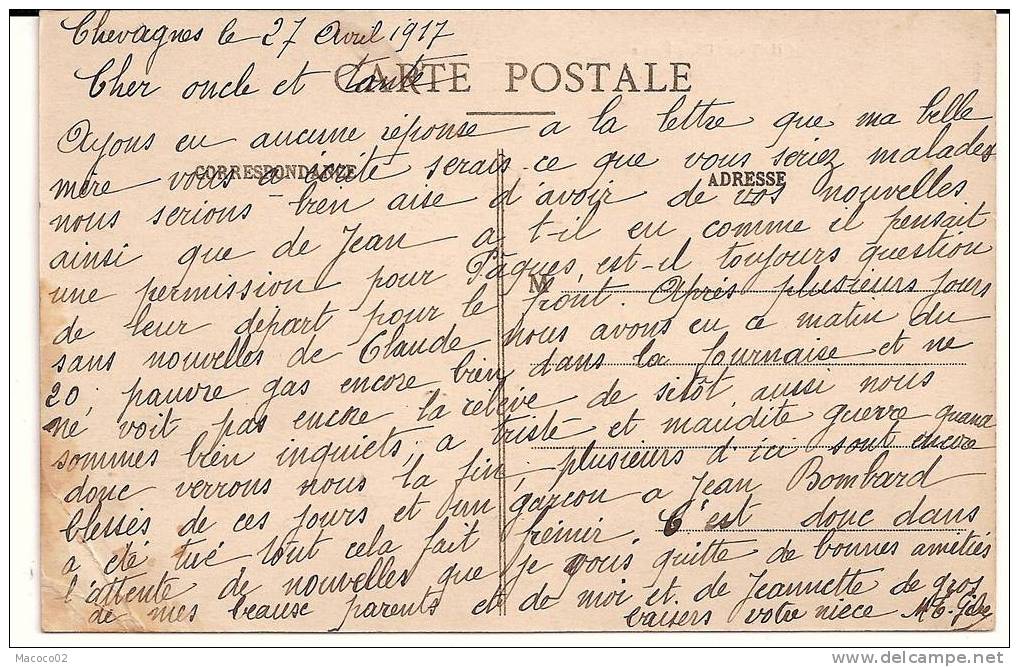 Chevagnes le 27 Avril 1917
CARTE POSTALE
Cher oncle et tante
Ayons eu aucune réponse a la lettre que ma belle
CORRESPONDANCE
ADRESSE
mère vous a écrite serais ce que vous seriez malades
nous serions bien aise d'avoir de vos nouvelles
ainsi que de Jean a t-il eu comme il pensait
une permission pour Pâques, est-il toujours question
M
de leur départ pour le front. Après plusieurs jours
sans nouvelles de Claude nous avons eu ce matin du
20, pauvre gas encore bien dans la fournaise et ne
ne voit pas encore la relève de sitôt aussi nous
sommes bien inquiets, a triste et maudite guerre quand
donc verrons nous la fin, plusieurs d'ici sont encore
blessés de ces jours et un garçon a Jean Bombard
a été tué tout cela fait frémir. C'est donc dans
l'attente de nouvelles que je vous quitte de bonnes amitiés
de mes beause parents et de moi et de Jeannette de gros
baisers votre nièce
Macoco02